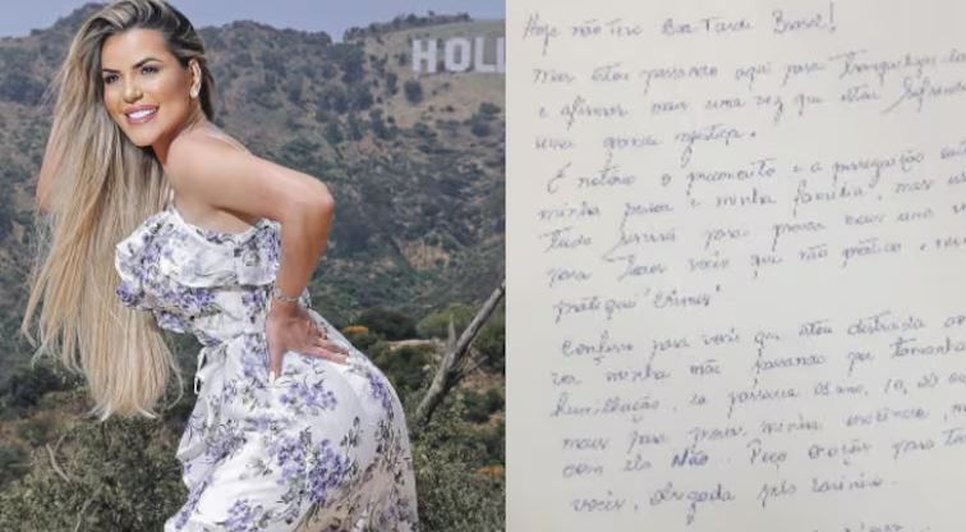 HOLL
Hoje não teve Boa Tarde Brasil!
Mas estou passando aqui para
e afirmar mais uma vez que estou sofrendo
uma grande injustiça.
É notório o preconceito e a perseguição
minha pessoa e minha família, mas
tudo servirá para provar mais uma
para vocês que não pratico e
pratiquei "crimes"
Confesso para vocês que estou destruída
ver minha mãe passando por tamanha
humilhação, eu passaria 01 ano, 10, 20 ou
mais para provar minha inocência,
com ela Não... Peço oração para
vocês, obrigada pelo carinho.